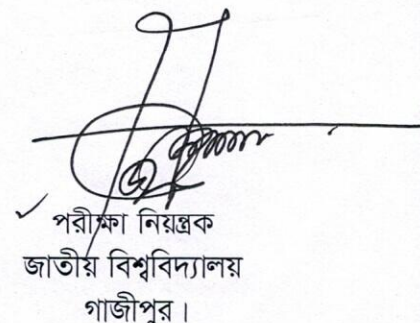 পরীক্ষা নিয়ন্ত্রক
জাতীয় বিশ্ববিদ্যালয়
গাজীপুর।